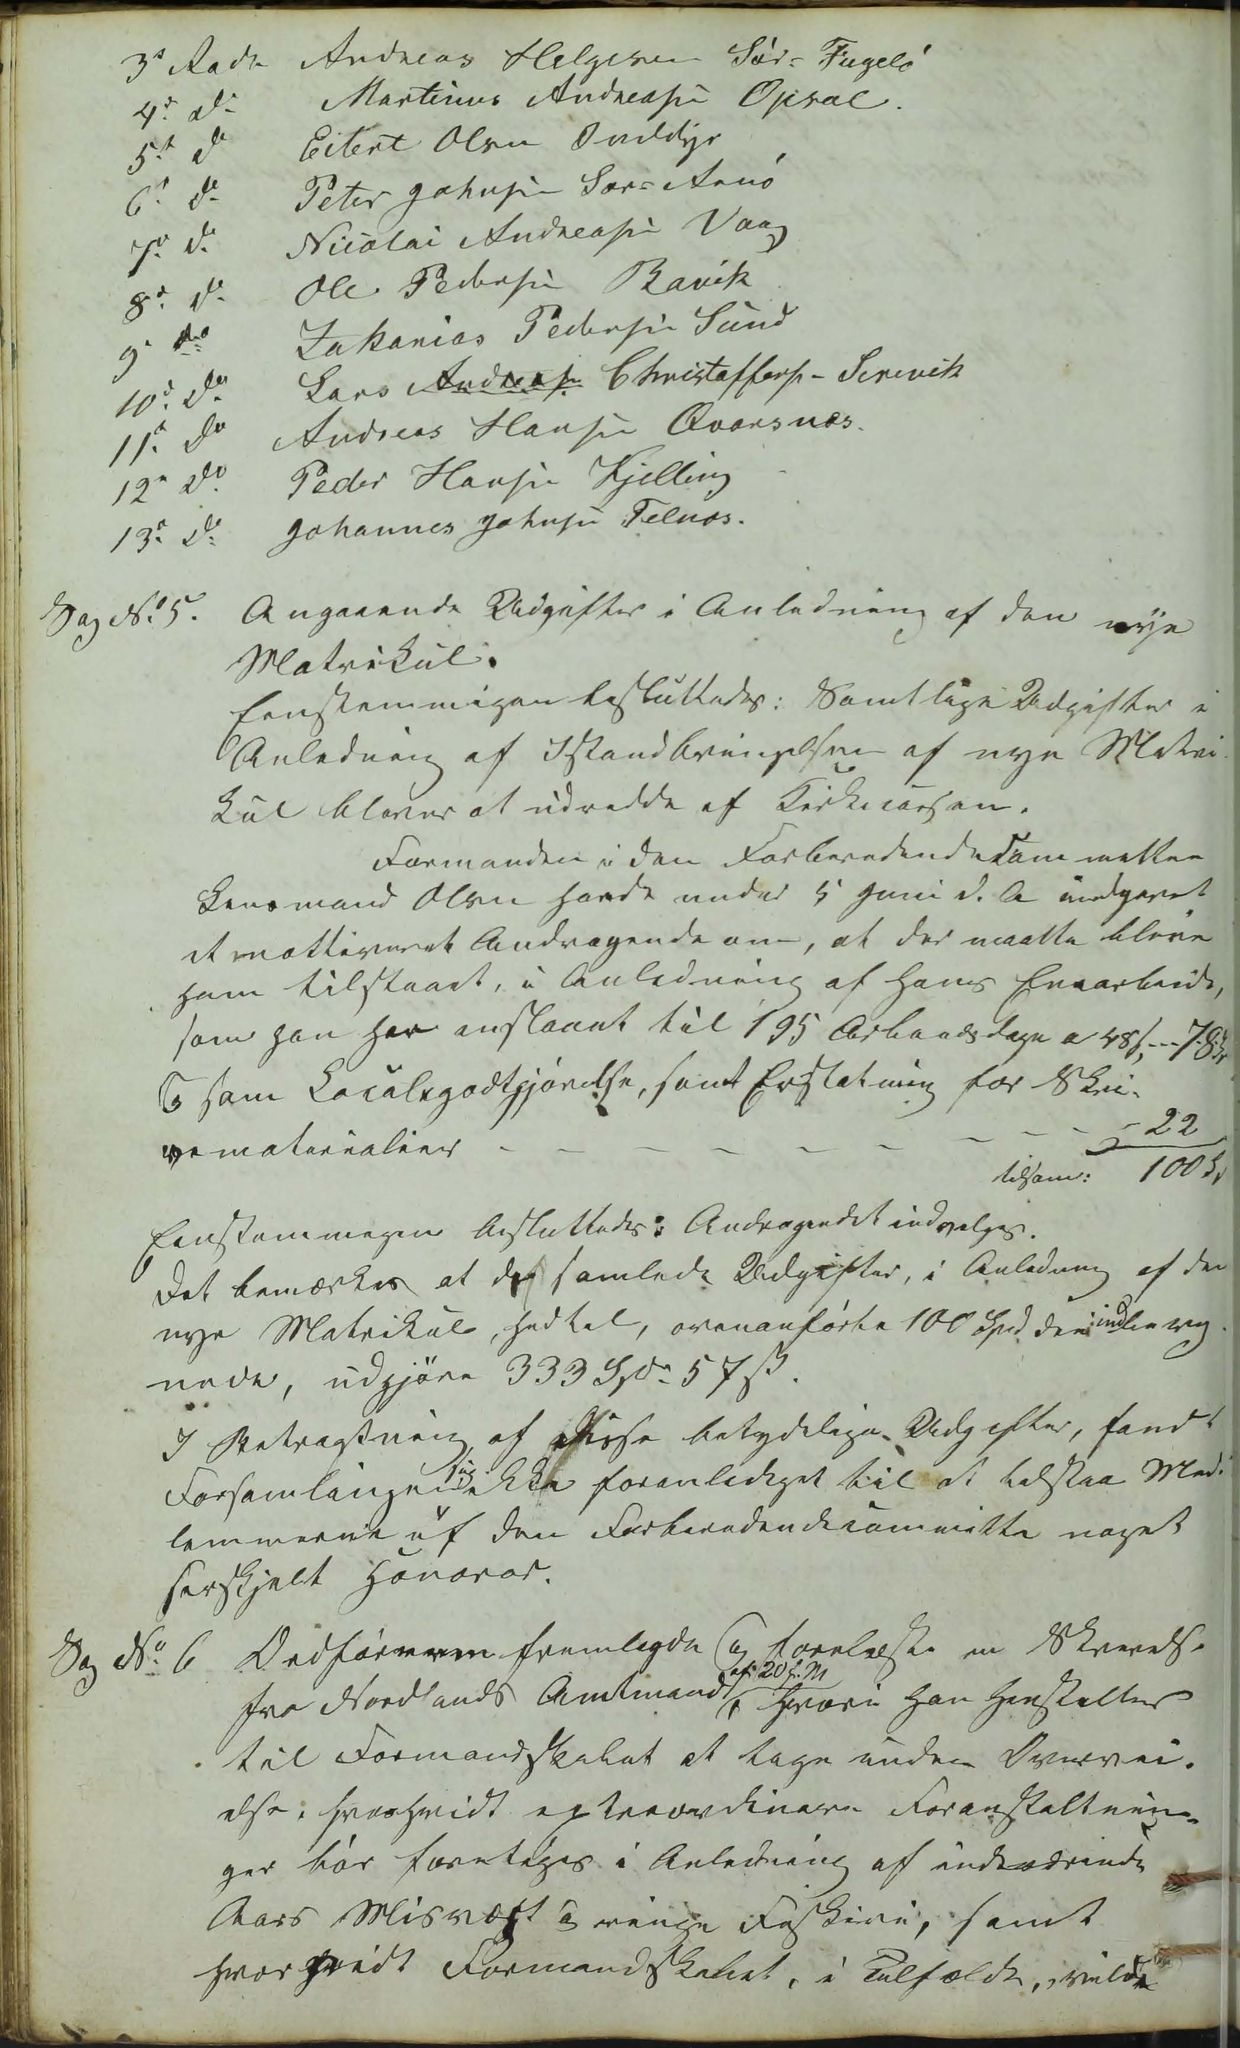 3d Rode Andreas Helgesen Sör-Fugelö
4d do Martinus Andreasen Opsal.
5t do Eilert Olsen Inddyr
6t do Peter Johnsen Sör-Arnö
7d do Nicolai Andreasen Vaag
8d do Ole Pedersen Ravik
9d do Zakarias Pedersen Sund
10d do Lars Andreas. Christoffers. Servik
11d do Andreas Hansen Qvarsnæs.
12d do Peder Hansen Kjelling
13d do Johannes Johnsen Felnos.
Sag No 5. Angaaende Udgifter i Anledning af den nye
Matrikul.
Eenstemmigen besluttedes: Samtlige Udgifter i
Anledning af Istandbringelsen af nye Matri-
kul bliver at udredde af Kirkecassen.
Formanden i den Forberedende Committee
Lensmand Olsen havde under 5 Juni d. A. indgivet
et mottiveret Andragende om, at der maatte blive
ham tilstaaet, i Anledning af hans Extraarbeide,
som han har anslaaet til 195 Arbeidsdage a 48 s --- 78 Sp
og som Localegodtgjörelse, samt Erstatning for Skri-
vematerialier - - - - - - - - - 22
tilsam: 100 Sp
Eenstemmigen besluttedes: Andragendet indvilges.
Det bemærkes at de samlede Udgifter, i Anledning af den
nye Matrikul, hidtil, ovenanförte 100 Spd deri indbereg-
nede, udgjöre 333 Spd 57 s.
I Betragtning af disse betydelige Udgifter, fandt
Forsamlingen sig ikke foranlediget til at tilstaa Med-
lemmerne af den Forberedendecommitte noget
serskjelt Honorar.
Sag No 6 Ordföreren fremlagde og forelæste en Skrivelse
fra Nordlands Amtmand af 20 f. M, hvori han henstiller
til Formandskabet at tage under Overvei-
else, hvorvidt extraordinære Foranstaltnin-
ger bör foretages i Anledning af indeværende
Aars Misvæxt og ringe Fiskeri, samt
hvorvidt Formandskabet, i Tilfælde, vilde